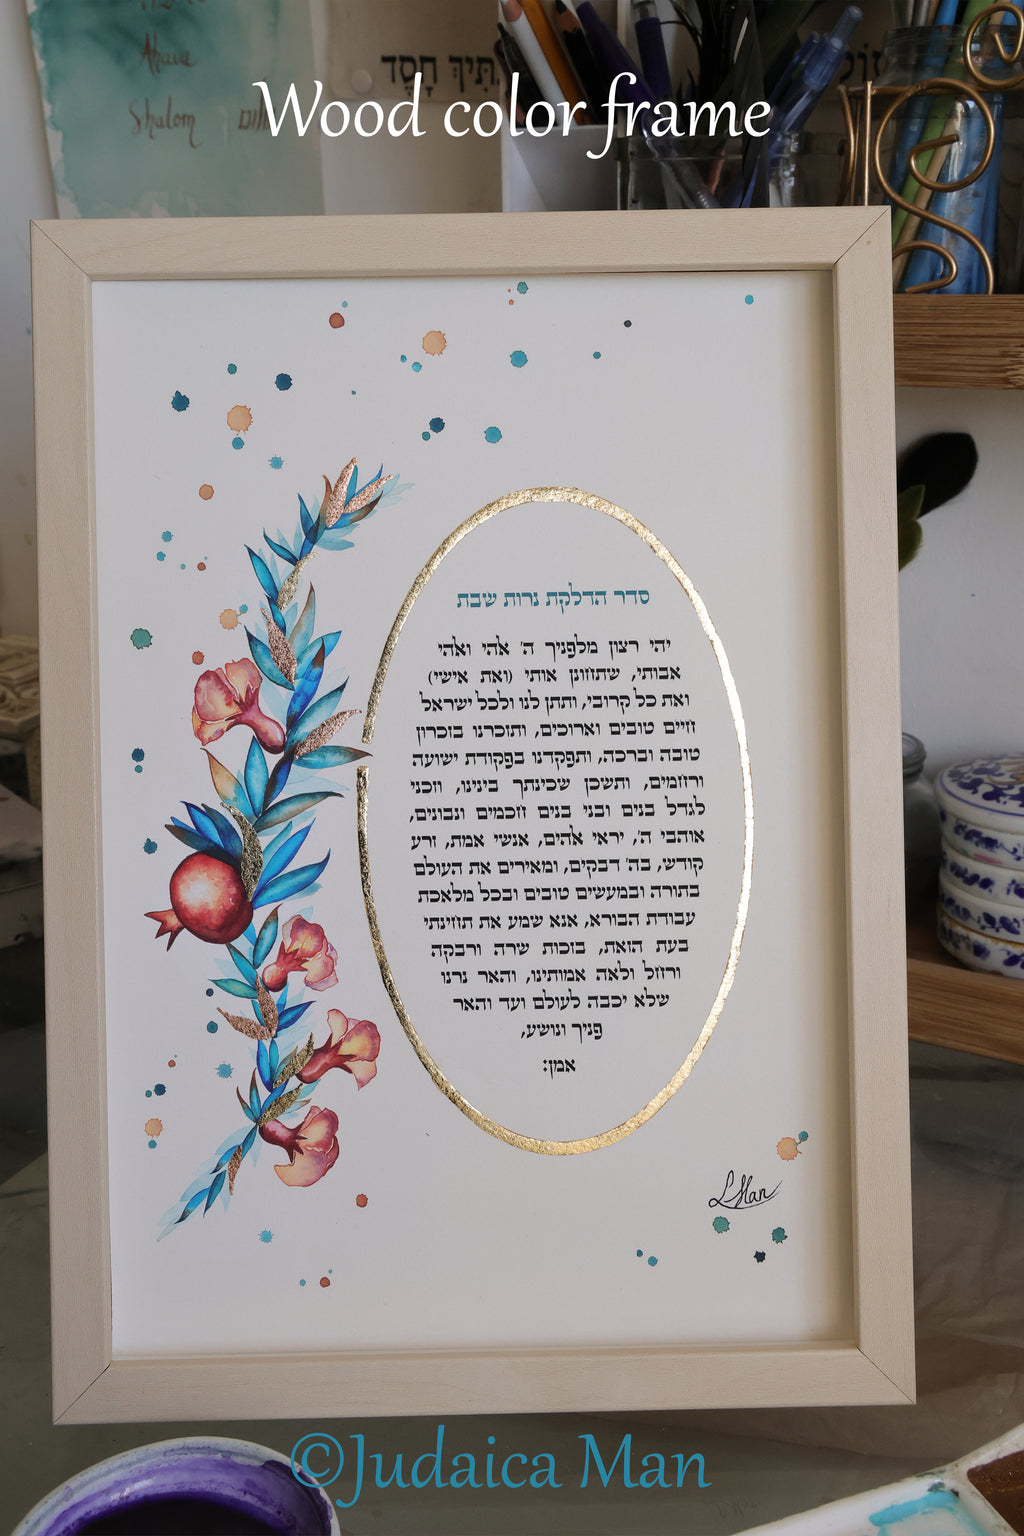 Ahava
Shalom
חָסֶד
Wood color frame
סדר הדלקת נרות שבת
יהי רצון מלפניך ה' אלהי ואלהי
אבותי, שתחונן אותי (ואת אישי)
ואת כל קרובי, ותתן לנו ולכל ישראל
חיים טובים וארוכים, ותזכרנו בזכרון
טובה וברכה, ותפקדנו בפקודת ישועה
ורחמים, ותשכן שכינתך בינינו, וזכני
לגדל בנים ובני בנים חכמים ונבונים,
אוהבי ה', יראי אלהים, אנשי אמת, זרע
קודש, בה' דבקים, ומאירים את העולם
בתורה ובמעשים טובים ובכל מלאכת
עבודת הבורא, אנא שמע את תחינתי
בעת הזאת, בזכות שרה ורבקה
ורחל ולאה אמותינו, והאר נרנו
שלא יכבה לעולם ועד והאר
פניך ונושע,
אמן:
L Man
©Judaica Man